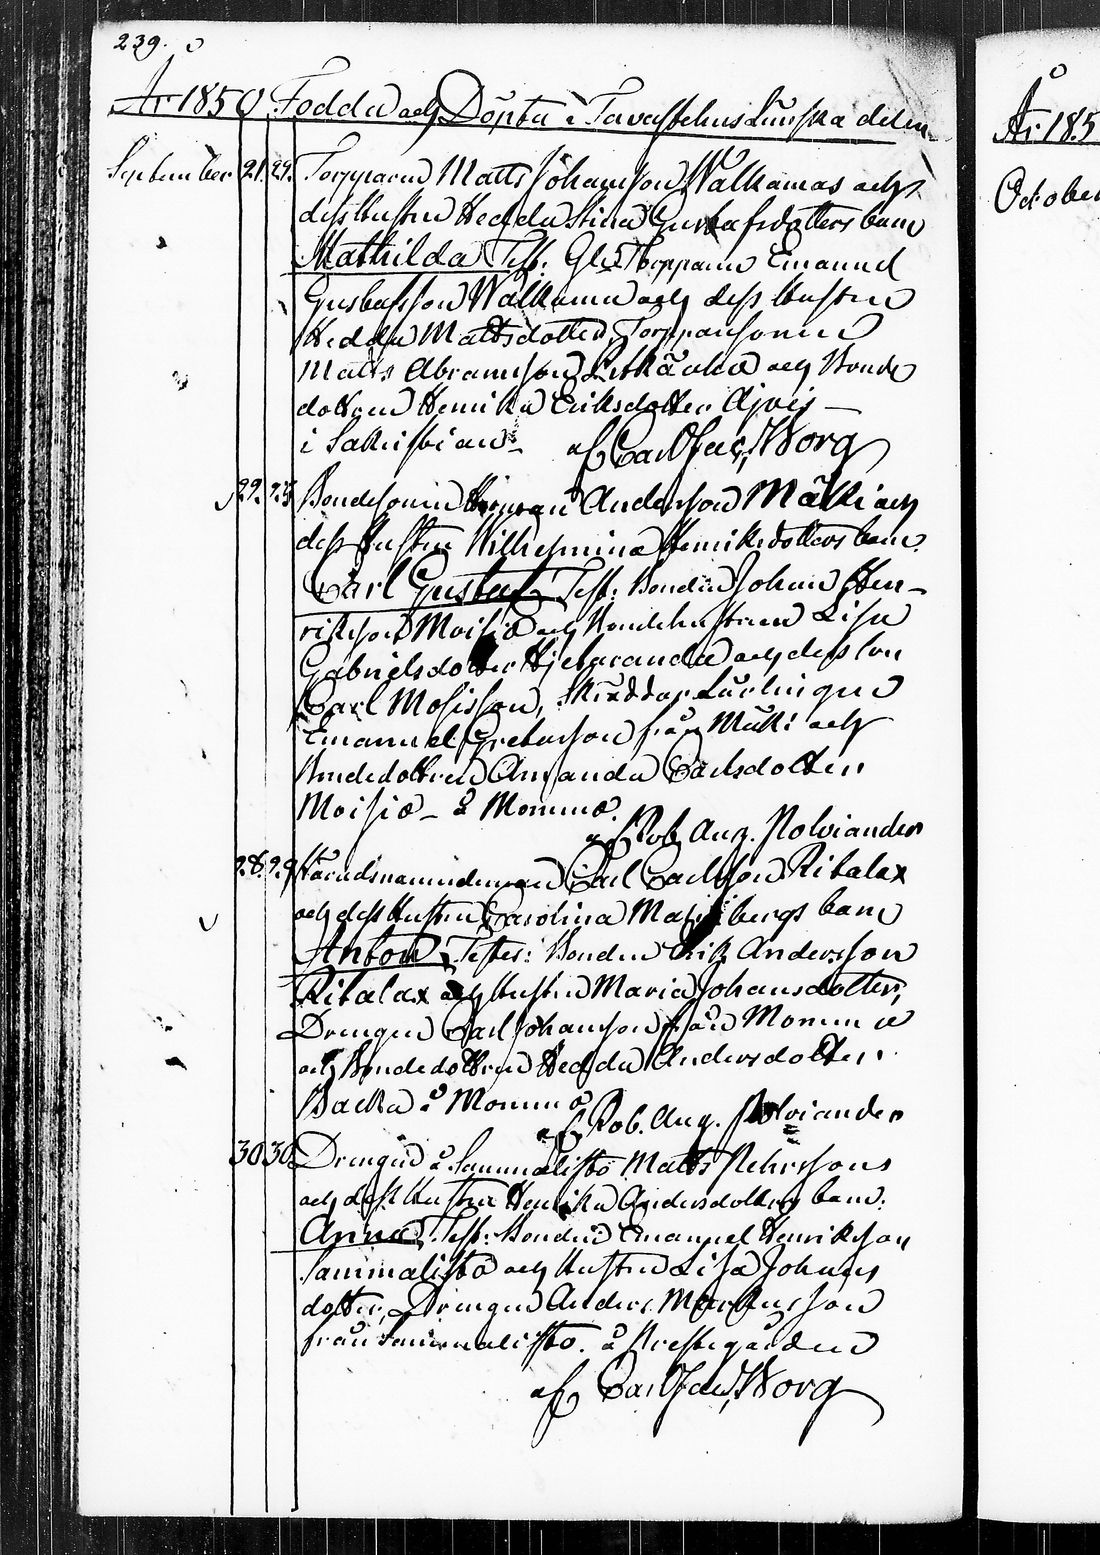 239.
År 1850 Födda och Döpta i Tavastehus Länska delen
September 21. 29. Torpparen Matts Johansson Walkamas och
dess hustru Hedda Stina Gustafsdotters barn
Mathilda Test: Torpparen Emanuel
Gustafsson Walkama och dess hustru
Hedda Mattsdotter, Torpparsonen
Matts Abramsson och Bonde
dottren Henrika Eriksdotter
i Sakristian af Carl Jac. Worg
22. 25. Bondesonen Herman Andersson Mäki och
dess hustru Wilhelmina Henriksdotters barn
Carl Gustaf Test: Bonden Johan Hen-
riksson Moisio och Bondehustrun Lisa
Gabrielsdotter och dess son
Carl Mosisson, Skräddar Lärlingen
Emanuel från Mäki och
Bondedottren Amanda Carlsdotter
Moisio - å Mommo.
af Rob. Aug. Polviander
28. 29. Häradsnämndeman Carl Carlsson Ritalax
och dess hustru Carolina barn
Anton, Testes: Bonden Erik Andersson
Ritalax och hustru Maria Johansdotter,
Drengen Carl Johansson från Mommo
och Bondedottren Hedda Andersdotter
Backa å Mommo
af Rob. Aug. Polviander
30 30. Drengen å Sammalisto Matts Pehrssons
och dess hustru Henrika Andersdotters barn:
Anna, Test: Bonden Emanuel Henriksson
Sammalisto och hustru Lisa Johans
dotter, Drengen Anders Markusson
från Sammalisto. å Prestegården
af Carl Jac. Worg
År 185
October